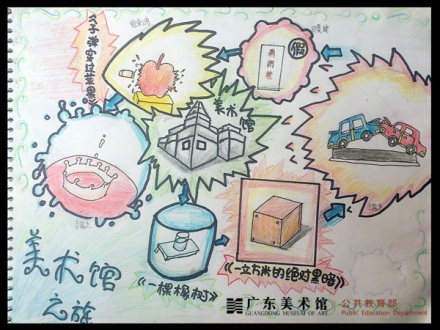 《子弹穿过苹果》
假
美术馆
美术馆
之旅
《一棵橡树》
《一立方米的绝对黑暗》
广东美术馆
GUANGDONG MUSEUM OF ART
公共教育部
Public Education Department